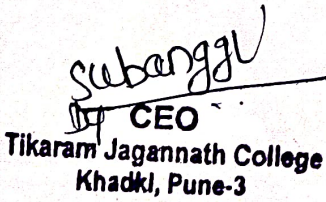 Subanggu
Dy CEO
Tikaram Jagannath College
Khadki, Pune-3